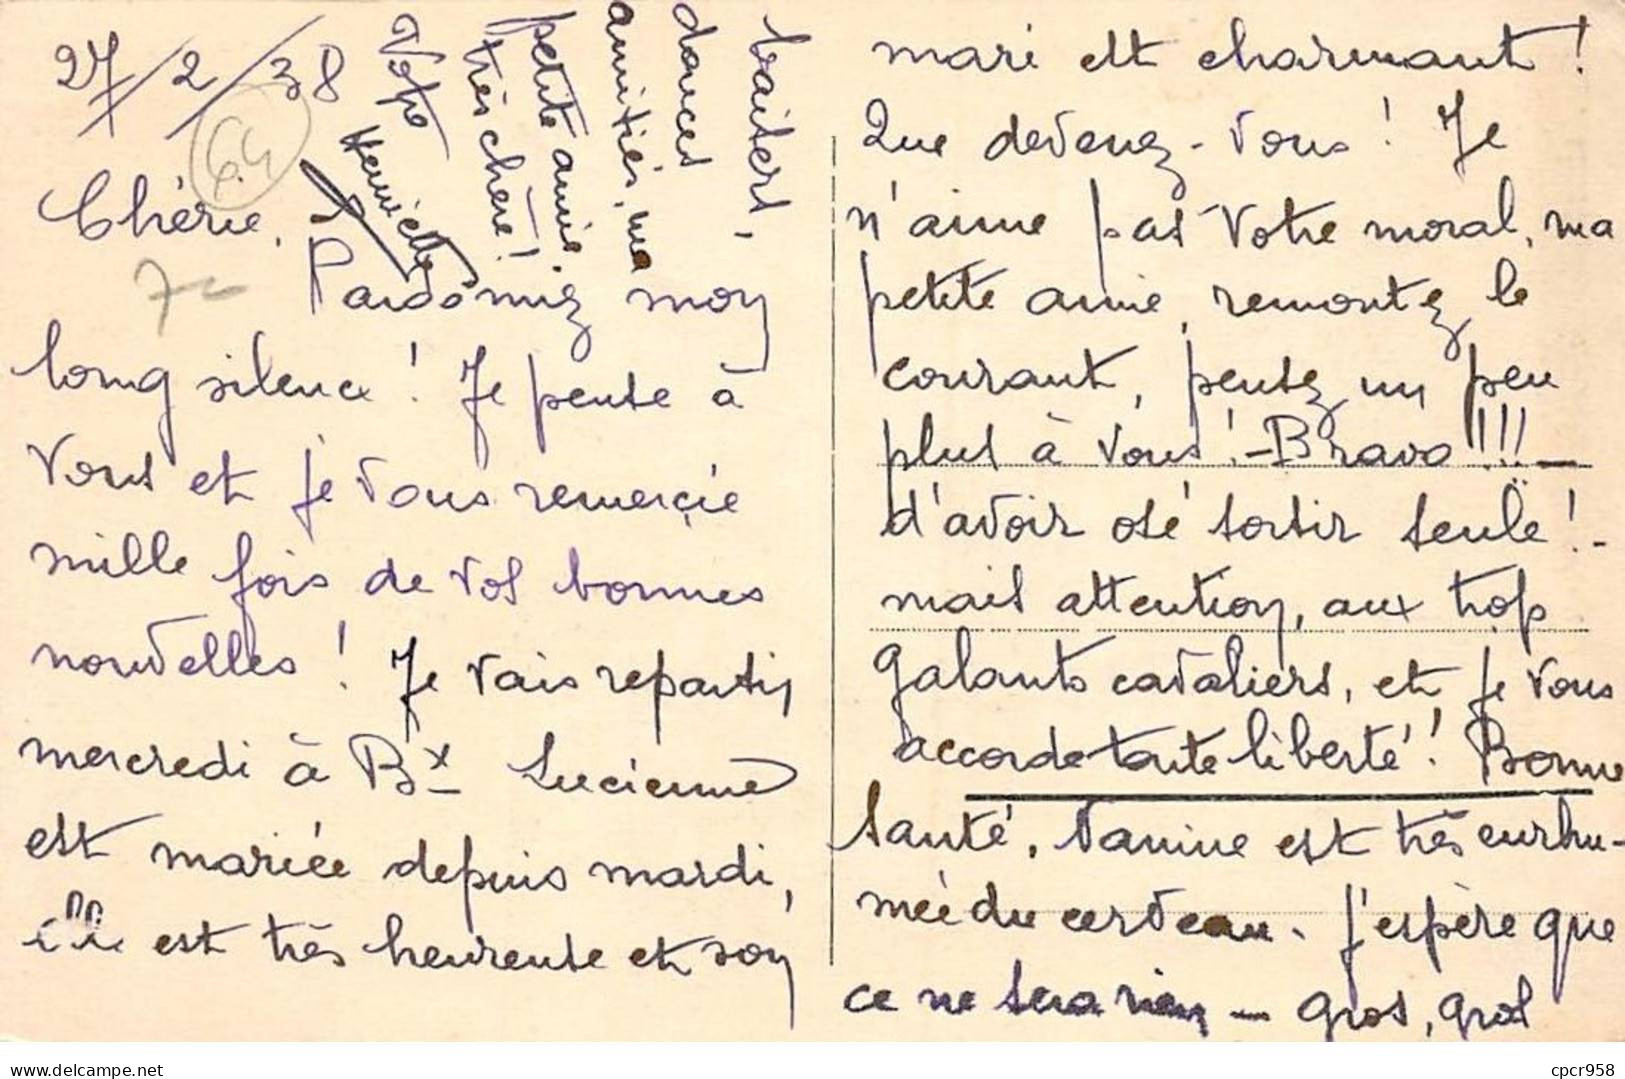 27/2/38
64
Chérie,
Pardonnez mon
long silence ! Je pense à
vous et je vous remerçie
mille fois de vos bonnes
nouvelles ! Je vais repartir
mercredi à Bx – Lucienne
est mariée depuis mardi,
elle est très heureuse et son
mari est charmant !
Que devenez-vous ! Je
n'aime pas votre moral, ma
petite amie, remontez le
courant, pensez un peu
plus à vous ! – Bravo !!! –
d'avoir osé sortir seule ! –
mais attention, aux trop
galants cavaliers, et je vous
accorde toute liberté ! Bonne
santé, Vanine est très enrhu-
mée du cerveau. J'espère que
ce ne sera rien – gros, gros
baisers,
douces
amitiés, ma
petite amie,
très chère !
Votre
Henriette
cpcr958